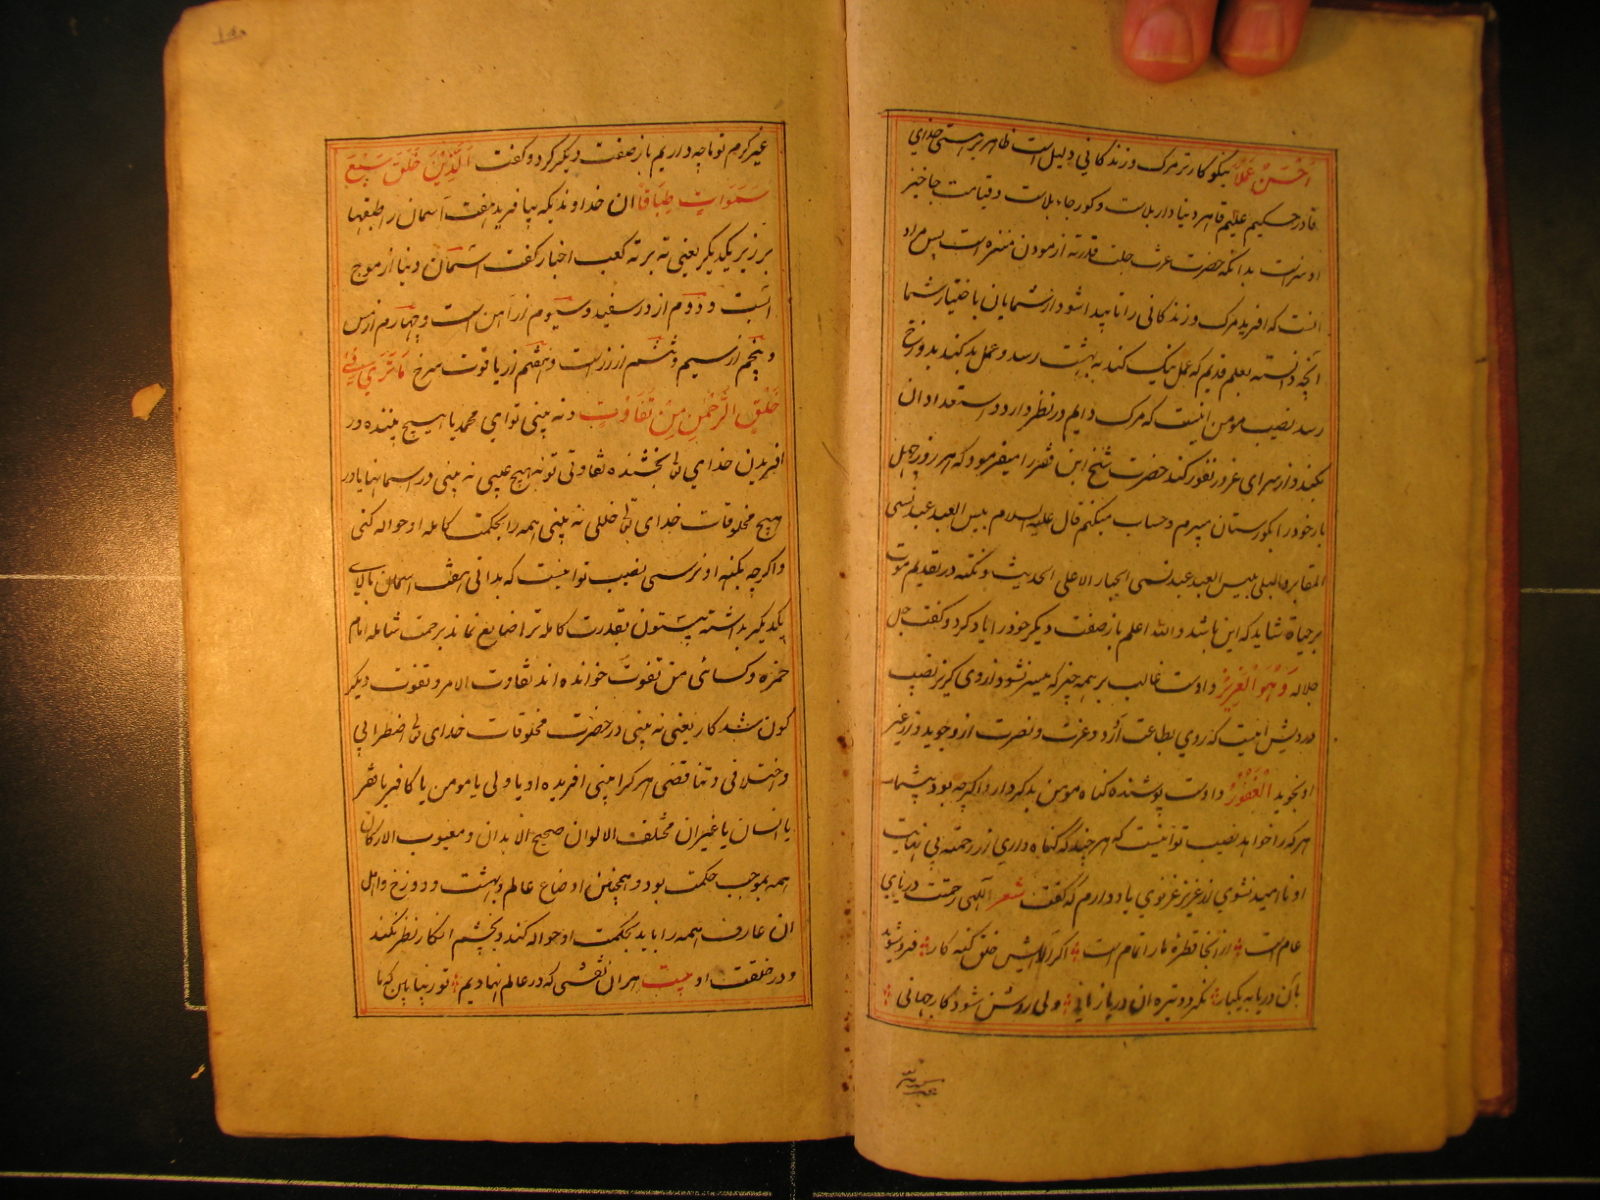 احسن عملا نیکو کارتر مرک و زندکانی دلیل است ظاهر بر هستی خدای
قادر حکیم علیم قاهر دنیا دار بلاست و کور جاء بلاست و قیامت جا خیز
او سزاست بدانکه حضرت عزت جلت قدرته ازمودن منزه است پس مراد
انست که افرید مرک و زندکانی را تا پیدا شود از شمایان باختیار شما
آنچه دانسته بعلم قدیم که عمل نیک کند به بهشت رسد و عمل بد کند بدوزخ
رسد نصیب مومن اینست که مرک دایم در نظر دارد و استعداد ان
بکند و از سرای غرور نفور کند حضرت شیخ این فقیر را میفرمود که هر روز چهل
بار خود را بکورستان میبرم و حساب میکنم قال علیه السلام بیس العبد عبد نسی
المقابر و البلی بیس العبد عبد نسی الجبار الاعلی الحدیث و نکته در تقدیم موت
بر حیاة شاید که این باشد و الله اعلم باز صفت دیکر خود را یاد کرد و کفت جل
جلاله وهو العزیز و اوست غالب بر همه چیز که میسر نشود از وی کریز نصیب
درویش اینست که روی بطاعت آرد و عزت و نصرت از و جوید و از غیر
او نجوید الغفور و اوست پوشنده کناه مومن بدکردار اکرچه بود بیشمار
هر که را خواهد نصیب تو اینست که هر چند که کناه داری از رحمت بی نهایت
او ناامید نشوی از عزیز غزنوی یاد دارم که کفت شعر الهی رحمتت دریای
عام است از انجا قطره ما را تمام است اکر الایش خلق کنه کار فرو شوید
بآن دریا به یکبار نکردد تیره ان دریا زمانی ولی روشن شود کار جهانی
غیر کرم تو ما چه داریم باز صفت دیکر کرد و کفت الذی خلق سبع
سموات طباقا ان خداوندیکه بیافرید هفت آسمان را طبقها
بر زبر یکدیکر یعنی ته بر ته کعب اخبار کفت اسمان دنیا از موج
است و دوم از در سفید و سیوم از آهن است و چهارم از مس
و پنجم از سیم و ششم از زر است و هفتم از یاقوت سرخ ما تری فی
خلق الرحمن من تفاوت و نه بینی تو ای محمد یا هیچ بیننده در
افریدن خدای تعالی بخشنده تفاوتی تو نه هیچ عیبی نه بینی در اسمانها یا در
هیچ مخلوقات خدای تعالی خللی نه بینی همه را بحکمت کامله او حواله کنی
و اکرچه بکنه او نرسی نصیب تو اینست که بدانی هفت اسمان بالای
یکدیکر بداشته بیستون بقدرت کامله ترا ضایع نماند برحمت شامله امام
حمزه و کسائی من تفوت خوانده اند تفاوت الامر و تفوت دیکر
کون شد کار یعنی نه بینی در حضرت مخلوقات خدای تعالی اضطرابی
و اختلافی و تناقضی هر کرا بینی افریده او یا ولی یا مومن یا کافر یا فقیر
یا انسان یا غیر ان مختلف الالوان صحیح الابدان و معیوب الارکان
همه بموجب حکمت بود و همچنین اوضاع عالم و بهشت و دوزخ و اهل
ان عارف همه را باید بحکمت او حواله کند و بچشم انکار نظر نکند
و در خلقت او بیت هر ان نقشی که در عالم نهادیم تو زیبا بین که ما